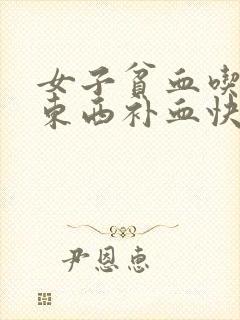 女子贫血喫
东西补血快
尹恩惠